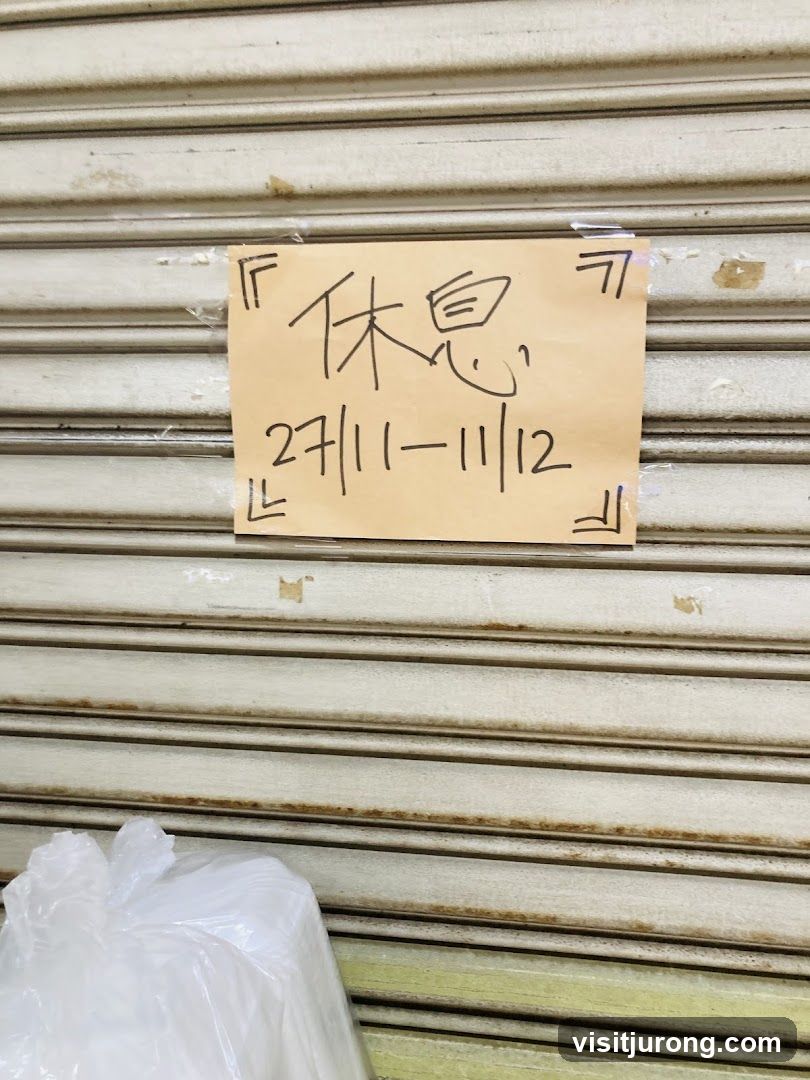 休息
27/11-11/12
visitjurong.com